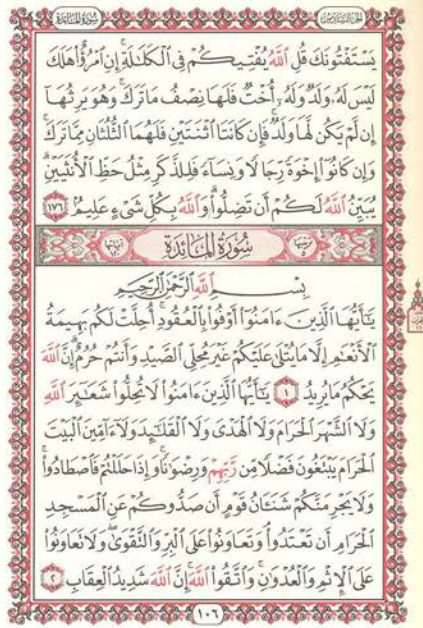 الجزء السادس سورة المائدة
يَسْتَفْتُونَكَ قُلِ ٱللَّهُ يُفْتِيكُمْ فِي ٱلْكَلَٰلَةِ ۚ إِنِ ٱمْرُؤٌا۟ هَلَكَ
لَيْسَ لَهُۥ وَلَدٌ وَلَهُۥٓ أُخْتٌ فَلَهَا نِصْفُ مَا تَرَكَ ۚ وَهُوَ يَرِثُهَآ
إِن لَّمْ يَكُن لَّهَا وَلَدٌ ۚ فَإِن كَانَتَا ٱثْنَتَيْنِ فَلَهُمَا ٱلثُّلُثَانِ مِمَّا تَرَكَ ۚ
وَإِن كَانُوٓا۟ إِخْوَةً رِّجَالًا وَنِسَآءً فَلِلذَّكَرِ مِثْلُ حَظِّ ٱلْأُنثَيَيْنِ ۗ
يُبَيِّنُ ٱللَّهُ لَكُمْ أَن تَضِلُّوا۟ ۗ وَٱللَّهُ بِكُلِّ شَىْءٍ عَلِيمٌۢ ١٧٦
سُورَةُ المَائِدَةِ
بِسْمِ ٱللَّهِ ٱلرَّحْمَٰنِ ٱلرَّحِيمِ
يَٰٓأَيُّهَا ٱلَّذِينَ ءَامَنُوٓا۟ أَوْفُوا۟ بِٱلْعُقُودِ ۚ أُحِلَّتْ لَكُم بَهِيمَةُ
ٱلْأَنْعَٰمِ إِلَّا مَا يُتْلَىٰ عَلَيْكُمْ غَيْرَ مُحِلِّى ٱلصَّيْدِ وَأَنتُمْ حُرُمٌ ۗ إِنَّ ٱللَّهَ
يَحْكُمُ مَا يُرِيدُ ١ يَٰٓأَيُّهَا ٱلَّذِينَ ءَامَنُوا۟ لَا تُحِلُّوا۟ شَعَٰٓئِرَ ٱللَّهِ
وَلَا ٱلشَّهْرَ ٱلْحَرَامَ وَلَا ٱلْهَدْىَ وَلَا ٱلْقَلَٰٓئِدَ وَلَآ ءَآمِّينَ ٱلْبَيْتَ
ٱلْحَرَامَ يَبْتَغُونَ فَضْلًا مِّن رَّبِّهِمْ وَرِضْوَٰنًا ۚ وَإِذَا حَلَلْتُمْ فَٱصْطَادُوا۟ ۚ
وَلَا يَجْرِمَنَّكُمْ شَنَـَٔانُ قَوْمٍ أَن صَدُّوكُمْ عَنِ ٱلْمَسْجِدِ
ٱلْحَرَامِ أَن تَعْتَدُوا۟ ۘ وَتَعَاوَنُوا۟ عَلَى ٱلْبِرِّ وَٱلتَّقْوَىٰ ۖ وَلَا تَعَاوَنُوا۟
عَلَى ٱلْإِثْمِ وَٱلْعُدْوَٰنِ ۚ وَٱتَّقُوا۟ ٱللَّهَ ۖ إِنَّ ٱللَّهَ شَدِيدُ ٱلْعِقَابِ ٢
١٠٦